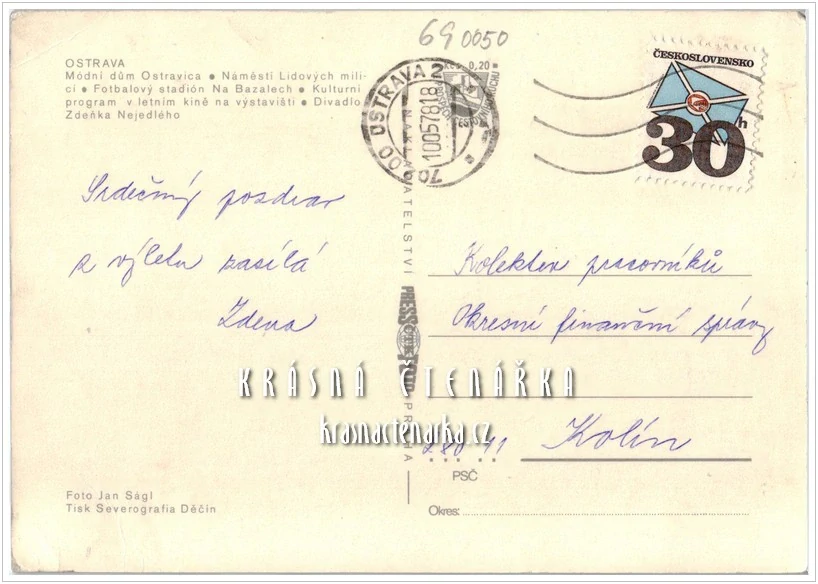 690050
OSTRAVA
Módní dům Ostravica ● Náměstí Lidových mili-
cí ● Fotbalový stadión Na Bazalech ● Kulturní
program v letním kině na výstavišti ● Divadlo
Zdeňka Nejedlého
Kčs 0,20
OSTRAVA 2
10.05.78.18
702 00
ČESKOSLOVENSKO
30h
Srdečný pozdrav
z výletu zasílá
Zdena
NAKLADATELSTVÍ
PRESSFOTO
PRAHA
Kolektiv pracovníků
Okresní finanční správy
KRÁSNÁ ČTENÁŘKA
krasnactenarka.cz
280 11 Kolín
PSČ
Okres:
Foto Jan Ságl
Tisk Severografia Děčín